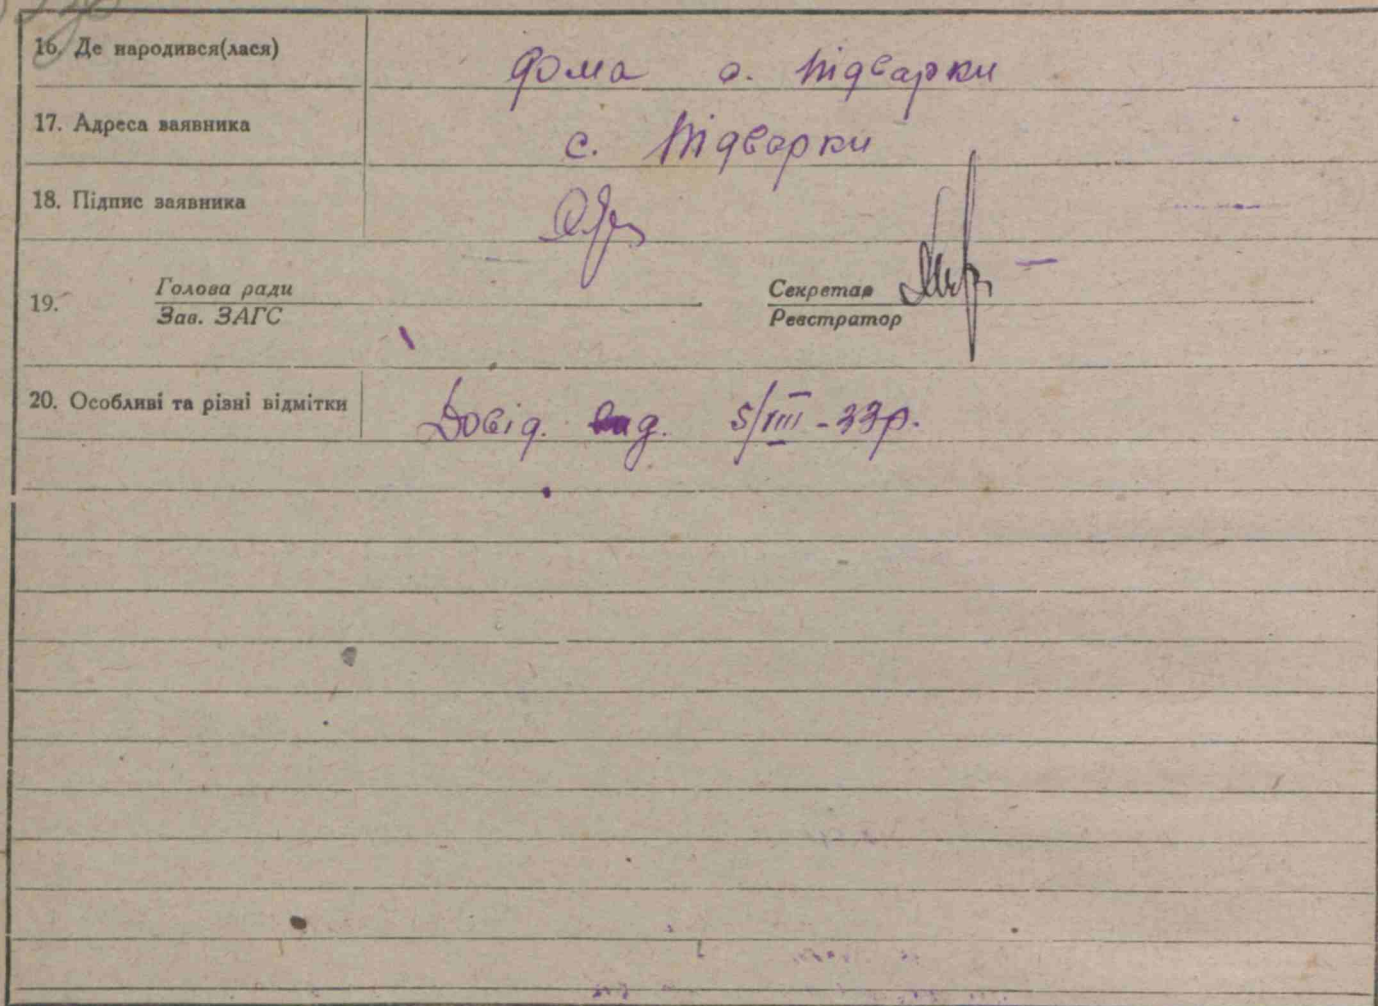 16. Де народився(лася) дома с. Підварки
17. Адреса заявника с. Підварки
18. Підпис заявника
19. Голова ради Секретар
Зав. ЗАГС Реєстратор
20. Особливі та різні відмітки Довід. вид. 5/III-33р.